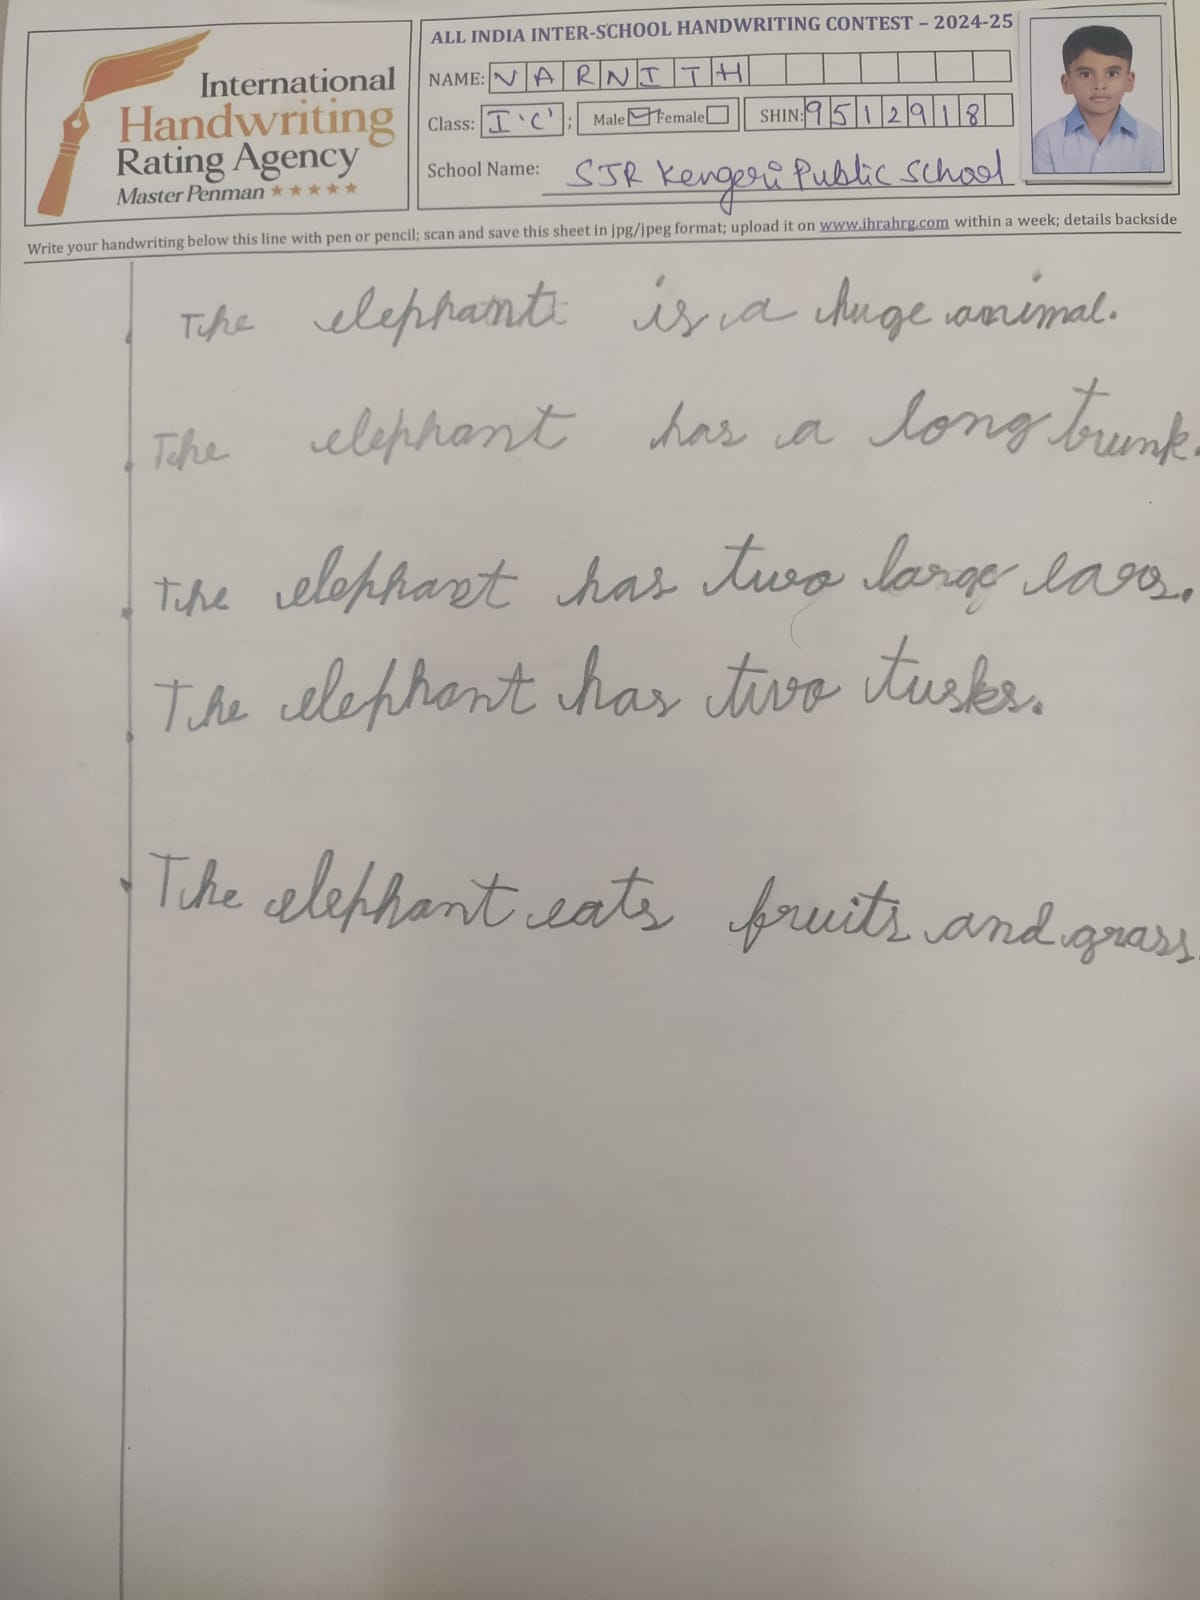 International
Handwriting
Rating Agency
Master Penman ★★★★★
ALL INDIA INTER-SCHOOL HANDWRITING CONTEST – 2024-25
NAME: VARNITH
Class: I 'C' ; Male Female SHIN: 9512918
School Name: SJR Kengeri Public School
Write your handwriting below this line with pen or pencil; scan and save this sheet in jpg/jpeg format; upload it on www.ihrahrg.com within a week; details backside
The elephant is a huge animal.
The elephant has a long trunk.
The elephant has two large ears.
The elephant has two tusks.
The elephant eats fruits and grass.